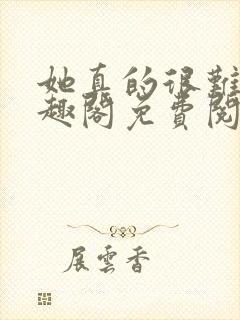 她真的很難
趣閣免費閱
展雲香